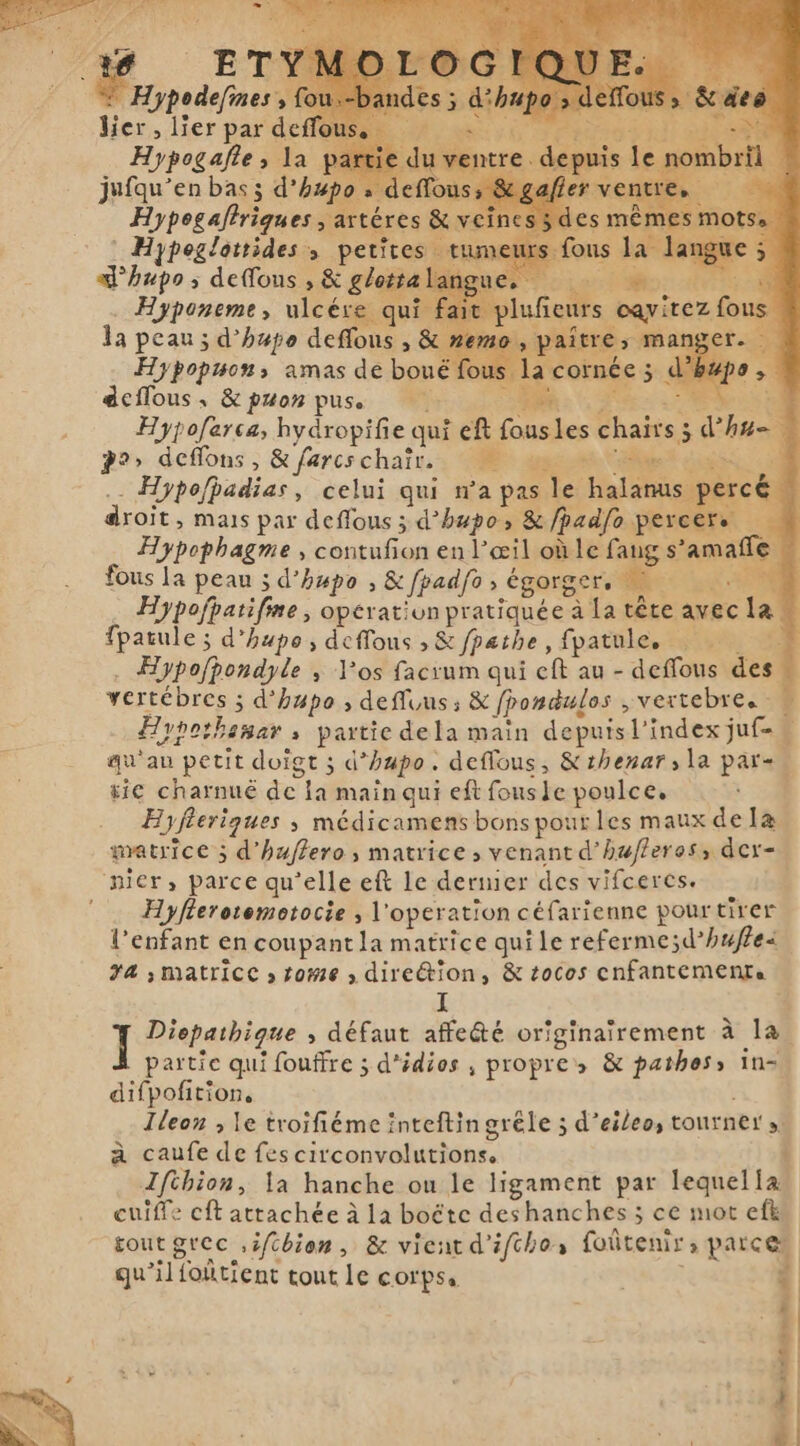 16 ETYMOLOGIQUE.
* Hypodeſmes, ſou-bandes ; d'hupo, deſſous, & deo
lier, lier par deſſous.
Hypogaſte, la partie du ventre depuis le nombril
juſqu'en bas ; d'hupo, deſſous, & gaſter ventre.
Hypogaſtriques, artéres & veines ; des mêmes mots.
Hypoglottides, petites tumeurs ſous la langue ;
d'hupo, deſſous, & glotta langue.
Hyponeme, ulcére qui fait pluſieurs cavitez ſous
la peau ; d'hupo deſſous, & nemo, paître, manger.
Hypopuon, amas de bouë ſous la cornée ; d'hupo,
deſſous, & puon pus.
Hypoſarca, hydropiſie qui eſt ſous les chairs ; d'hu-
po, deſſons, & ſarcs chair.
Hypoſpadias, celui qui n'a pas le halanus percé
droit, mais par deſſous ; d'hupo, & ſpadſo percer.
Hypophagme, contuſion en l'œil où le ſang s'amaſſe
ſous la peau ; d'hupo, & ſpadſo, égorger.
Hypoſpatiſme, opération pratiquée à la tête avec la
ſpatule ; d'hupo, deſſous, & ſpathe, ſpatule.
Hypoſpondyle, l'os ſacrum qui eſt au-deſſous des
vertébres ; d'hupo, deſſous ; & ſpondulos, vertebre.
Hypothenar, partie de la main depuis l'index juſ-
qu'au petit doigt ; d'hupo. deſſous, & thenar, la par-
tie charnuë de la main qui eſt ſous le poulce.
Hyſteriques, médicamens bons pour les maux de la
matrice ; d'huſtero, matrice, venant d'huſteros, der-
nier, parce qu'elle eſt le dernier des viſceres.
Hyſterotomotocie, l'operation céſarienne pour tirer
l'enfant en coupant la matrice qui le referme ; d'huſte-
ra, matrice, tome, direction, & tocos enfantement.
I
IDiopathique, défaut affecté originairement à la
partie qui ſouffre ; d'idios, propre, & pathos, in-
diſpoſition.
Ileon, le troiſiéme inteſtin grêle ; d'eileo, tourner,
à cauſe de ſes circonvolutions.
Iſchion, la hanche ou le ligament par lequel la
cuiſſe eſt attachée à la boëte des hanches ; ce mot eſt
tout grec, iſchion, & vient d'iſcho, ſoûtenir, parce
qu'il ſoûtient tout le corps.